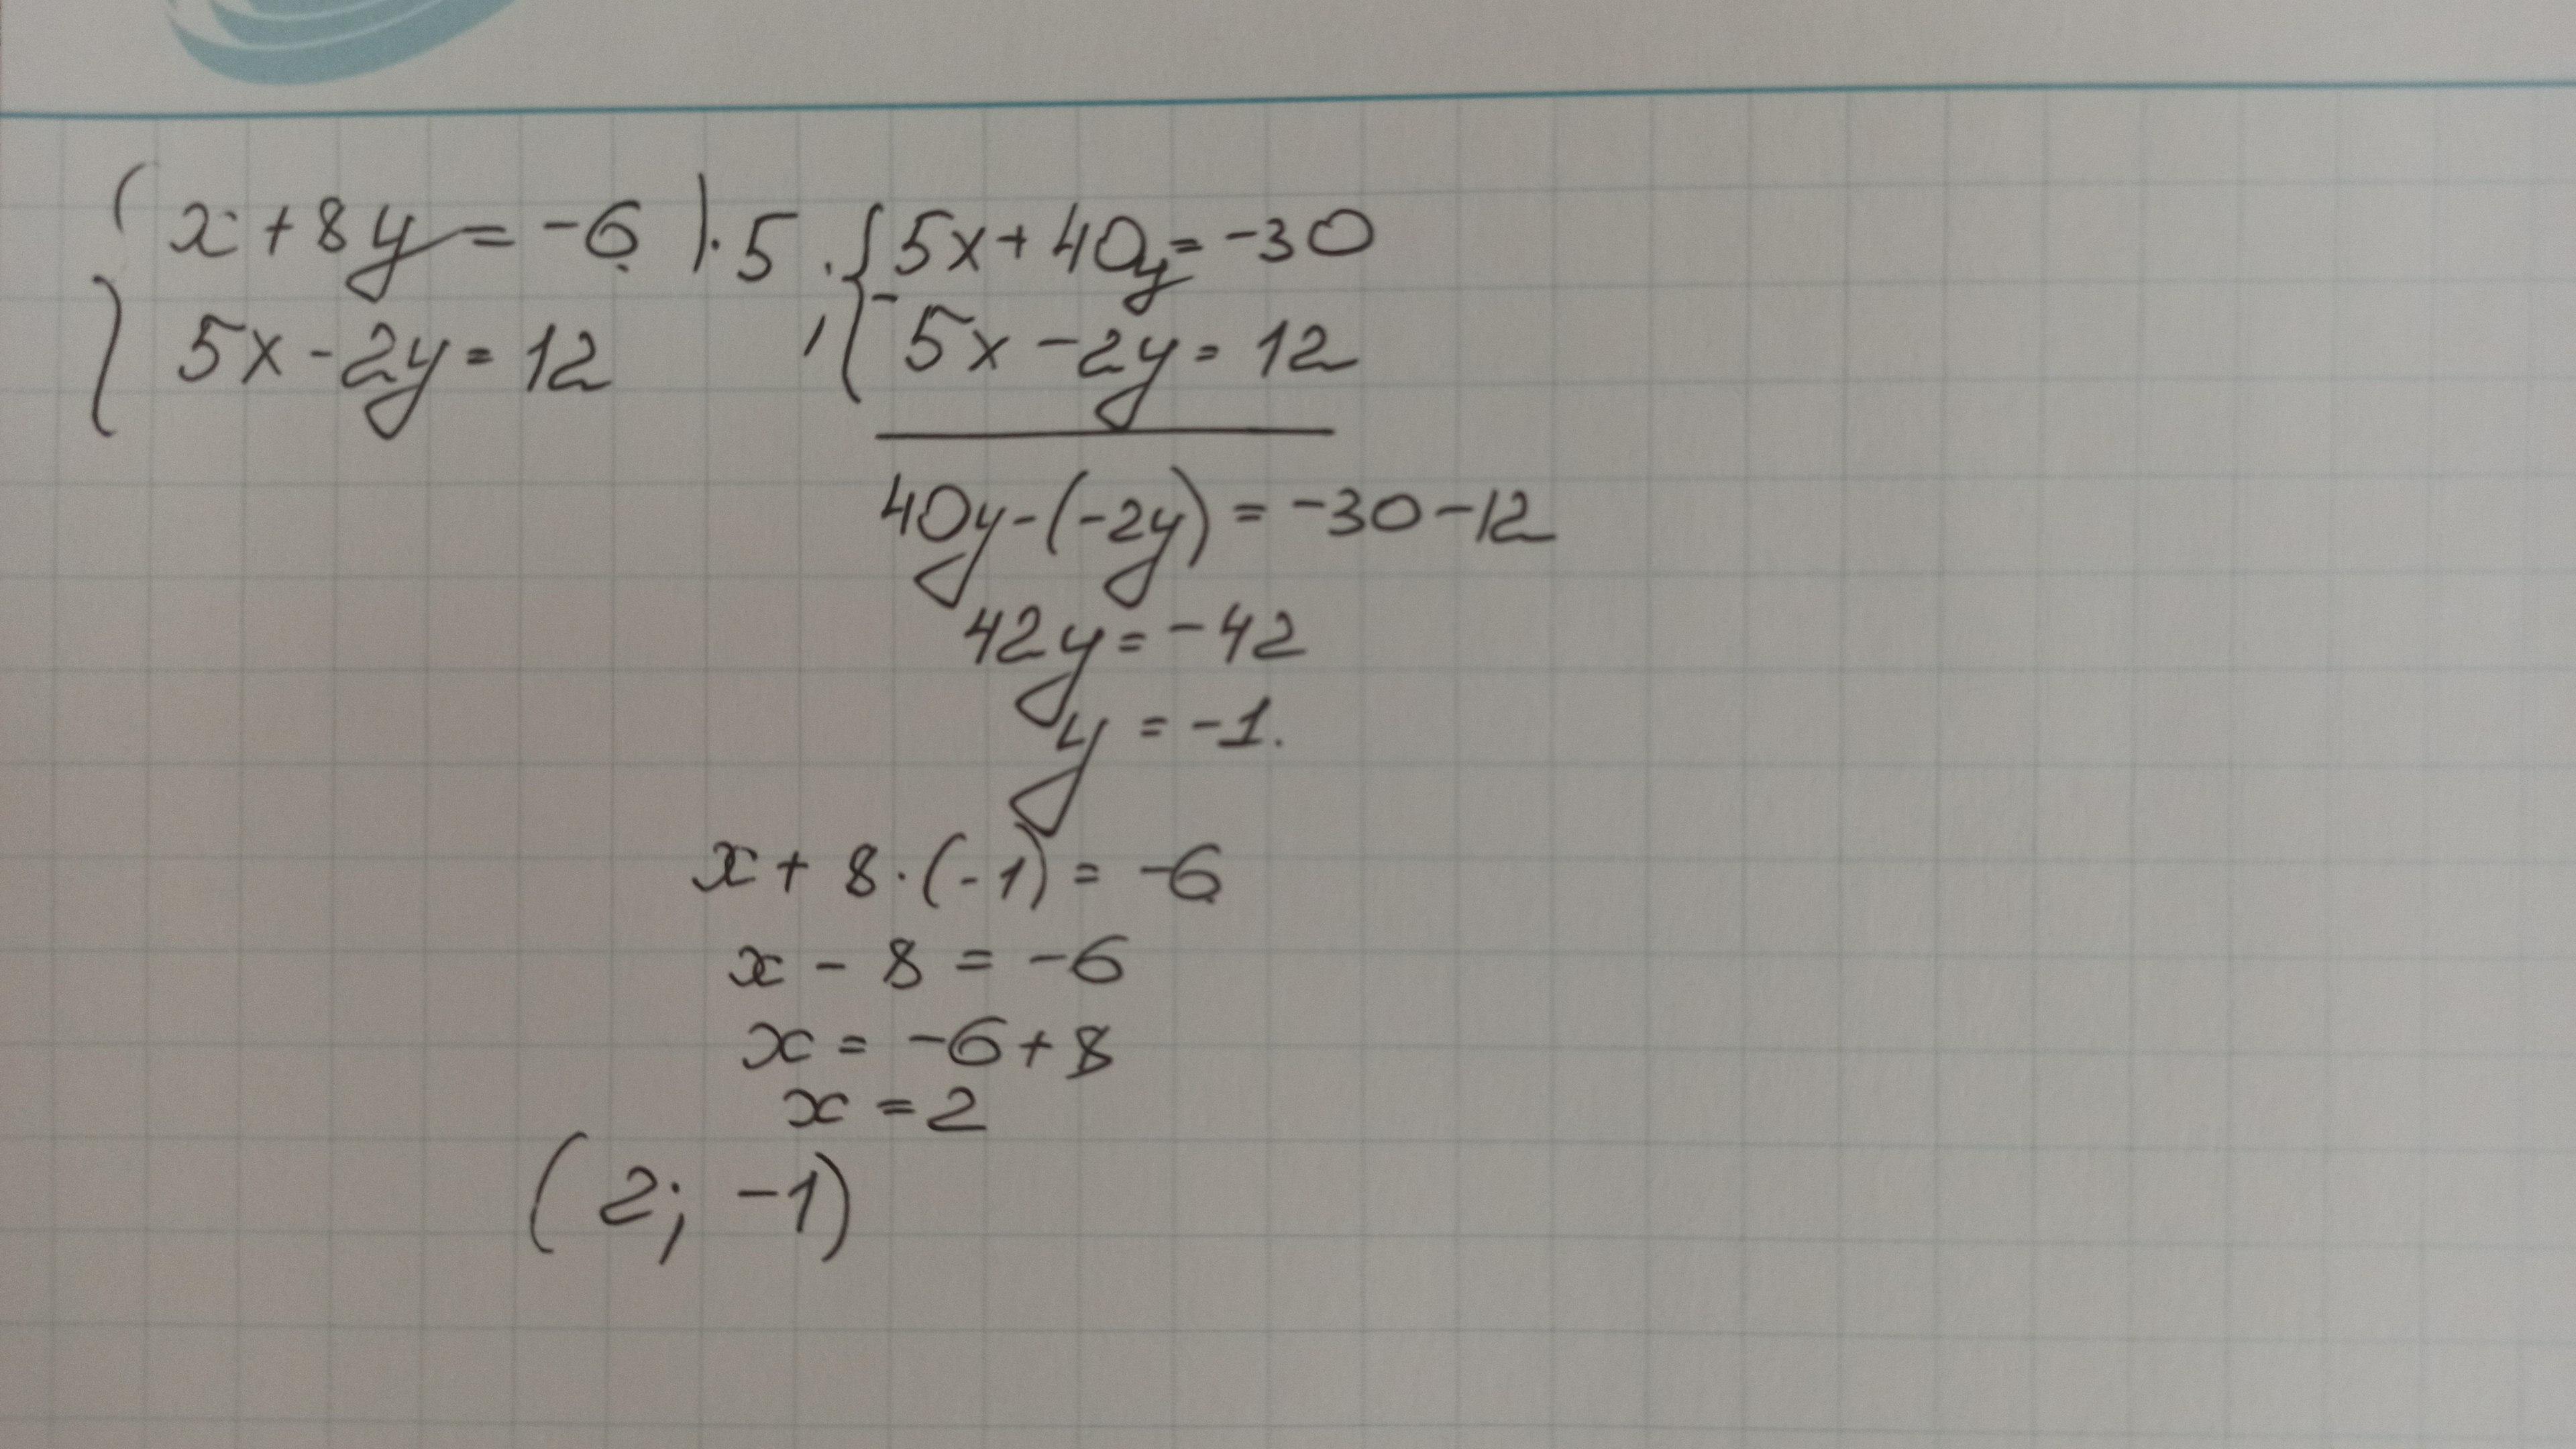 { x + 8y = -6 | · 5 ; { 5x + 40y = -30
5x - 2y = 12 - 5x - 2y = 12
40y - (-2y) = -30 - 12
42y = -42
y = -1.
x + 8 · (-1) = -6
x - 8 = -6
x = -6 + 8
x = 2
(2; -1)